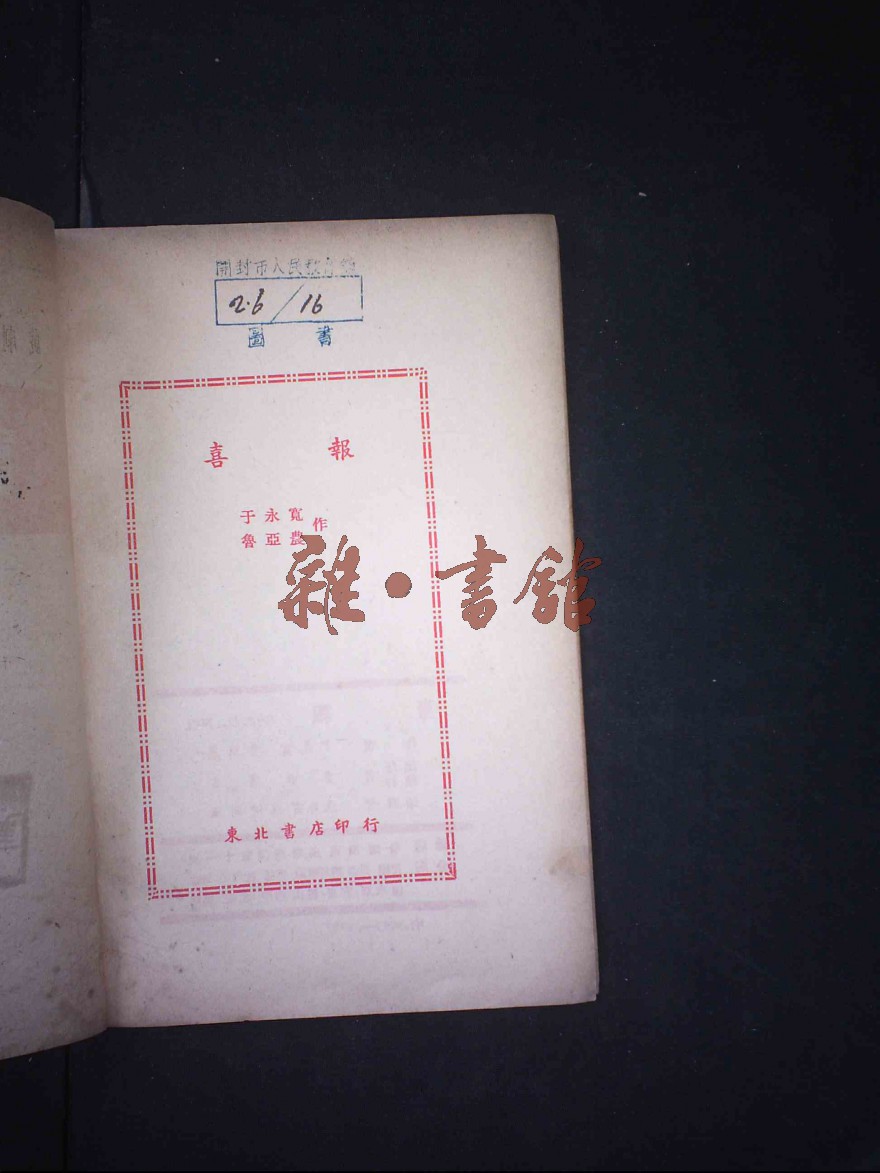 開封市人民教育館
2·6/16
圖書
喜報
于永寬
魯亞農
作
雜·書舘
東北書店印行